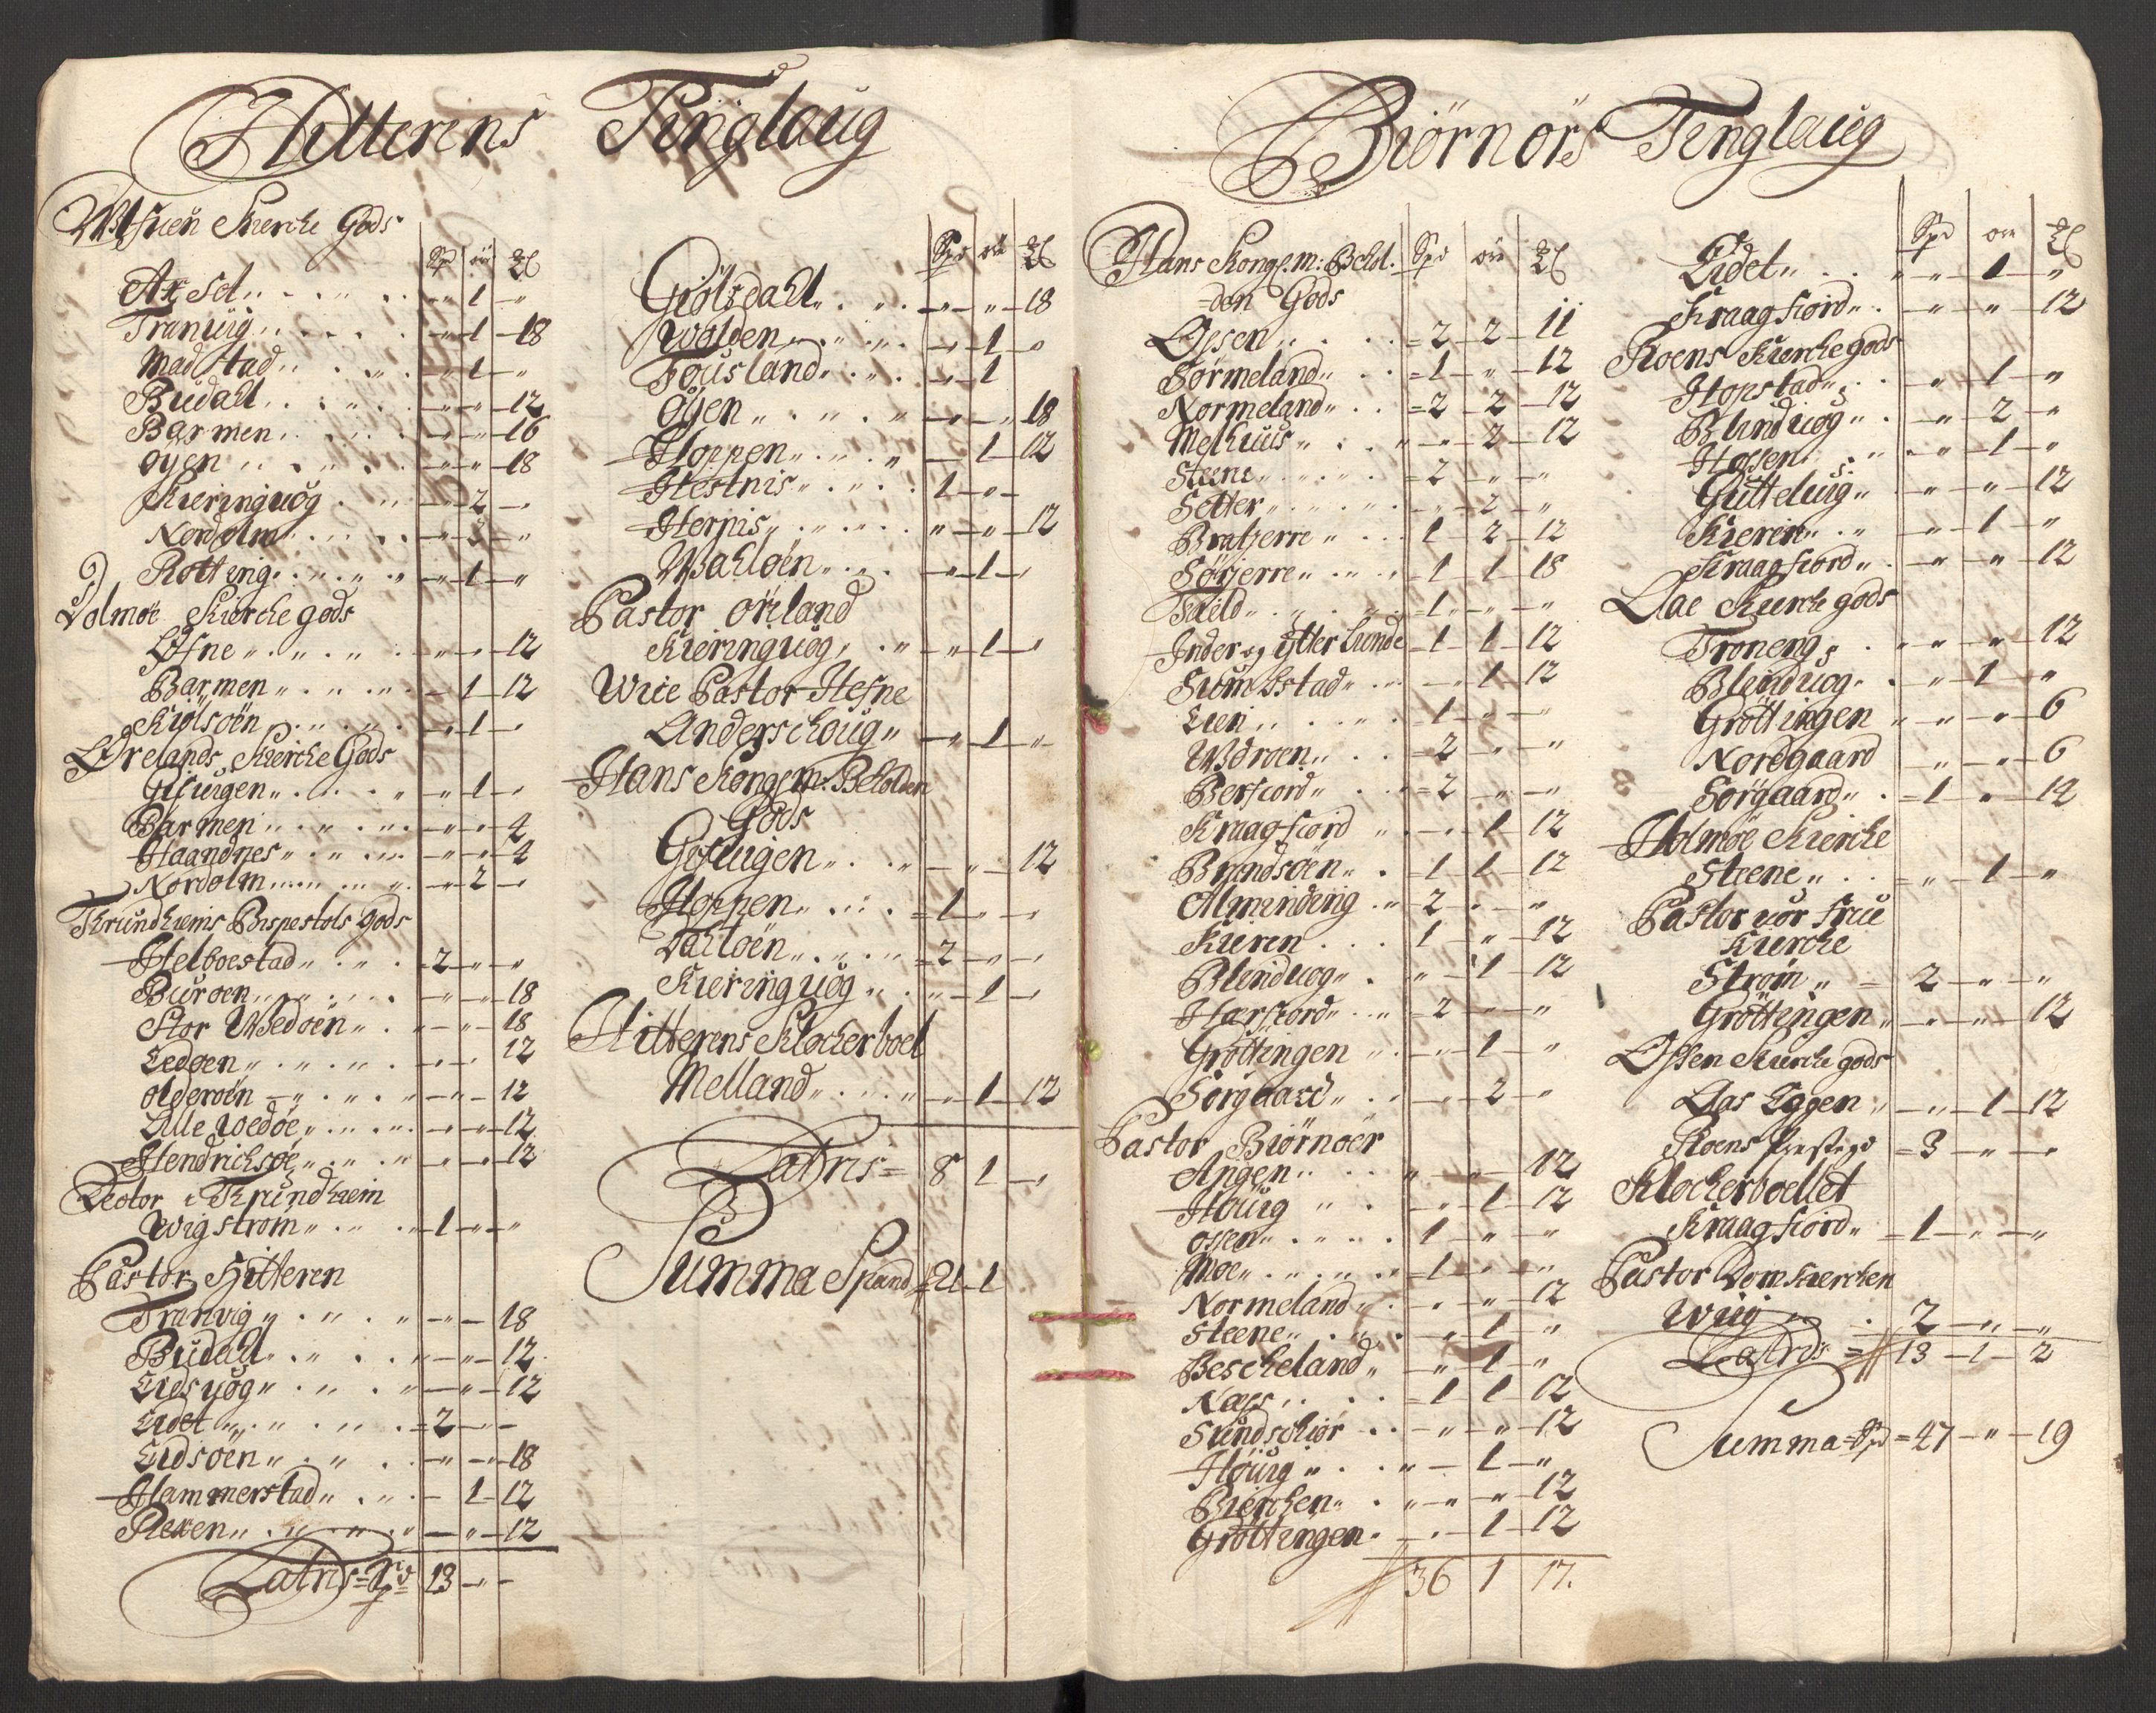 Hitterens Tinglaug
Kierche Gods
Spd öre
Axset " 1 "
Tranuig " 1 18
Madstad " 1 "
Budall " " 12
Barmen " " 16
oyen " " 18
Kieringuog " 2 "
Nordolm
Rotting " 1 "
Dolmöe Kierche gods
Ofne " " 12
Barmen " 1 12
Kiölsöen " 1 "
Ørelands Kierche Gods
" 1 "
Barmen " "
Haandnes " "
Nordolm " 2 "
Thrundhiems Bispestols Gods
Helboestad 2 " "
Buroen " " 18
Stor Wedöen " " 18
Ledoen " " 12
olderoen " " 12
Lille Wedöe " " 12
Hendrichsöe " " 12
Lector i Thrundhiem
Wigstrøm 1 " "
Pastor Hitteren
Tranvig " " 18
Budall " " 12
Eidsuog " " 12
Eidet 2 " "
Eidsöen " " 18
Hammerstad " 1 12
Rexen " " 12
Latris Spd 13 " "
Spd öre
Giölsdall " " 18
Wolden " 1 "
Fousland " 1
Öyen " " 18
Hoppen " 1 12
Hestnis 1 " "
Hernis " " 12
Wahlöen " 1 "
Pastor Örland
Kieringuog " 1 "
Wice Pastor Hefne
Anderschoug " 1 "
Hans Kongl: m: Beholden
Gods
" " 12
Hoppen 1 " "
Dalöen 2 " "
Kieringuog " 1 "
Hitterens Klocherboel
Melland " 1 12
Latris 8 1 "
Summa Spand 21 1
Biörnörs Tinglaug
Hans Kongl: m: Behol. Spd öre
den Gods
Oysen 2 2 11
Sörmeland 1 " 12
Normeland 2 2 12
Melhuus " 2 12
Steene 2 " "
Setter " 2 "
Bratjerre 1 2 12
Sörjerre 1 1 18
1 " "
Inder og ytter Lunde 1 1 12
Sumbstad " 1 12
Lien 1 " "
2 " "
Berfiord 2 " "
Kraagfiord " 1 12
Brandsöen 1 1 12
Alminding 2 " "
Kieren 1 " 12
Blinduog " 1 12
Harfiord 2 " "
Gröttingen " 1 "
Sörgaard " 2 "
Pastor Biörnöer
Angen " " 12
Houg " 1 12
ossen 1 " "
Moe 1 " "
Normeland " " 12
Steene " 1 "
Bescheland " 1 "
Næss 1 1 12
Sundschier " " 12
Houg " 1 "
Bierchen " " 12
Gröttingen " 1 12
36 1 17.
Spd öre
Eidet " 1 "
Kraagfiord " " 12
Roens Kierche gods
Hopstad " 1 "
Blinduog " 2 "
Hossen " 1 "
Gutteluig " " 12
Kieren " 1 "
Kraagfiord " " 12
Aae Kierche gods
Troneng " " 12
Blinduog " 1 "
Gröttingen " " 6
Nordgaard " " 6
Sörgaard 1 " 12
Holmöe Kierche
Steene " 1 "
Pastor uor Frue
Kierche
Strøm 2 " "
Gröttingen " " 12
Ossen Kierche gods
Aas Eggen " 1 12
Roens 3 " "
Klocherboellet
Kraagfiord 1 " "
Pastor Domkierchen
Wiig 2 " "
Latris 13 1 2
Summa Spd 47 " 19